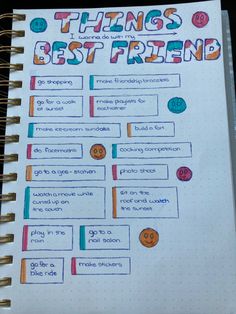 THINGS
I wanna do with my
BEST FRIEND
go shopping
make friendship bracelets
go for a walk
at sunset
make playlists for
eachother
make ice-cream sundaes
build a fort
do facemasks
cooking competition
go to a gas-station
photo shoot
watch a movie while
curled up on
the couch
sit on the
roof and watch
the sunset
play in the
rain
go to a
nail salon
go for a
bike ride
make stickers